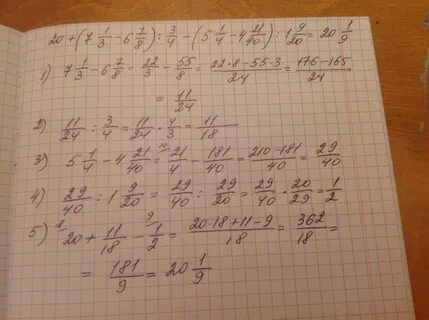 20 + (7 1/3 - 6 7/8) : 3/4 - (5 1/4 - 4 21/40) : 1 9/20 = 20 1/9
1) 7 1/3 - 6 7/8 = 22/3 - 55/8 = (22·8-55·3)/24 = (176-165)/24 =
= 11/24
2) 11/24 : 3/4 = 11/24 · 4/3 = 11/18
3) 5 1/4 - 4 21/40 = 21/4 - 181/40 = (210-181)/40 = 29/40
4) 29/40 : 1 9/20 = 29/40 : 29/20 = 29/40 · 20/29 = 1/2
5) 20 + 11/18 - 1/2 = (20·18+11-9)/18 = 362/18 =
= 181/9 = 20 1/9